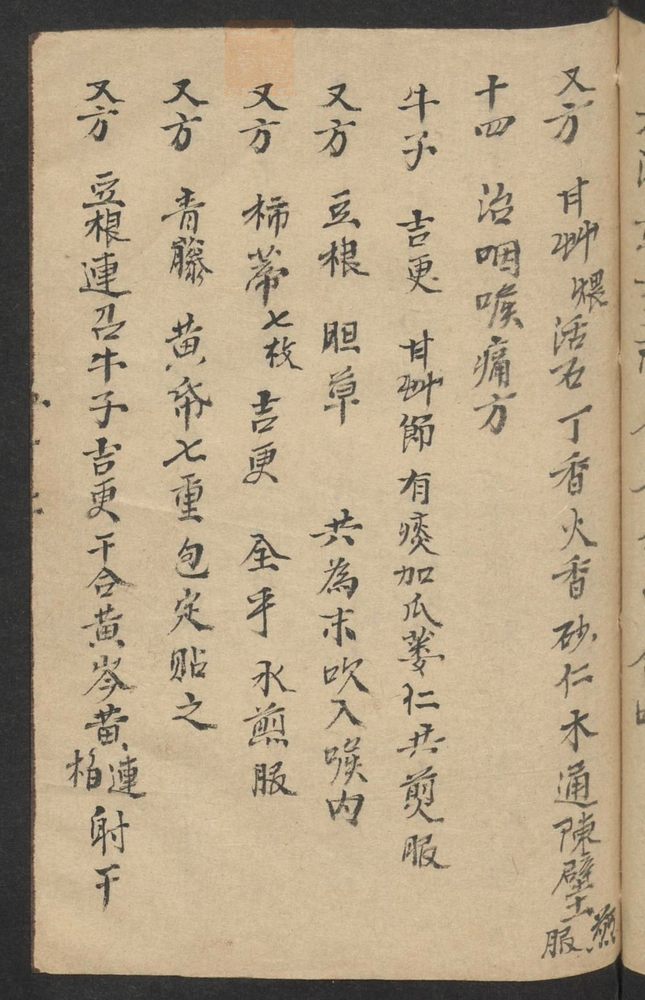 又方 甘艸 煨活石 丁香 火香 砂仁 木通 陳壁土 煎服
十四 治咽喉痛方
牛子 吉更 甘艸節 有痰加瓜蔞仁 共煎服
又方 豆根 胆草 共為末吹入喉内
又方 柿蒂七枚 吉更 仝乎 水煎服
又方 青藤 黄帋七重包定貼之
又方 豆根 連召 牛子 吉更 干合 黄岑 黄連 栢 射干